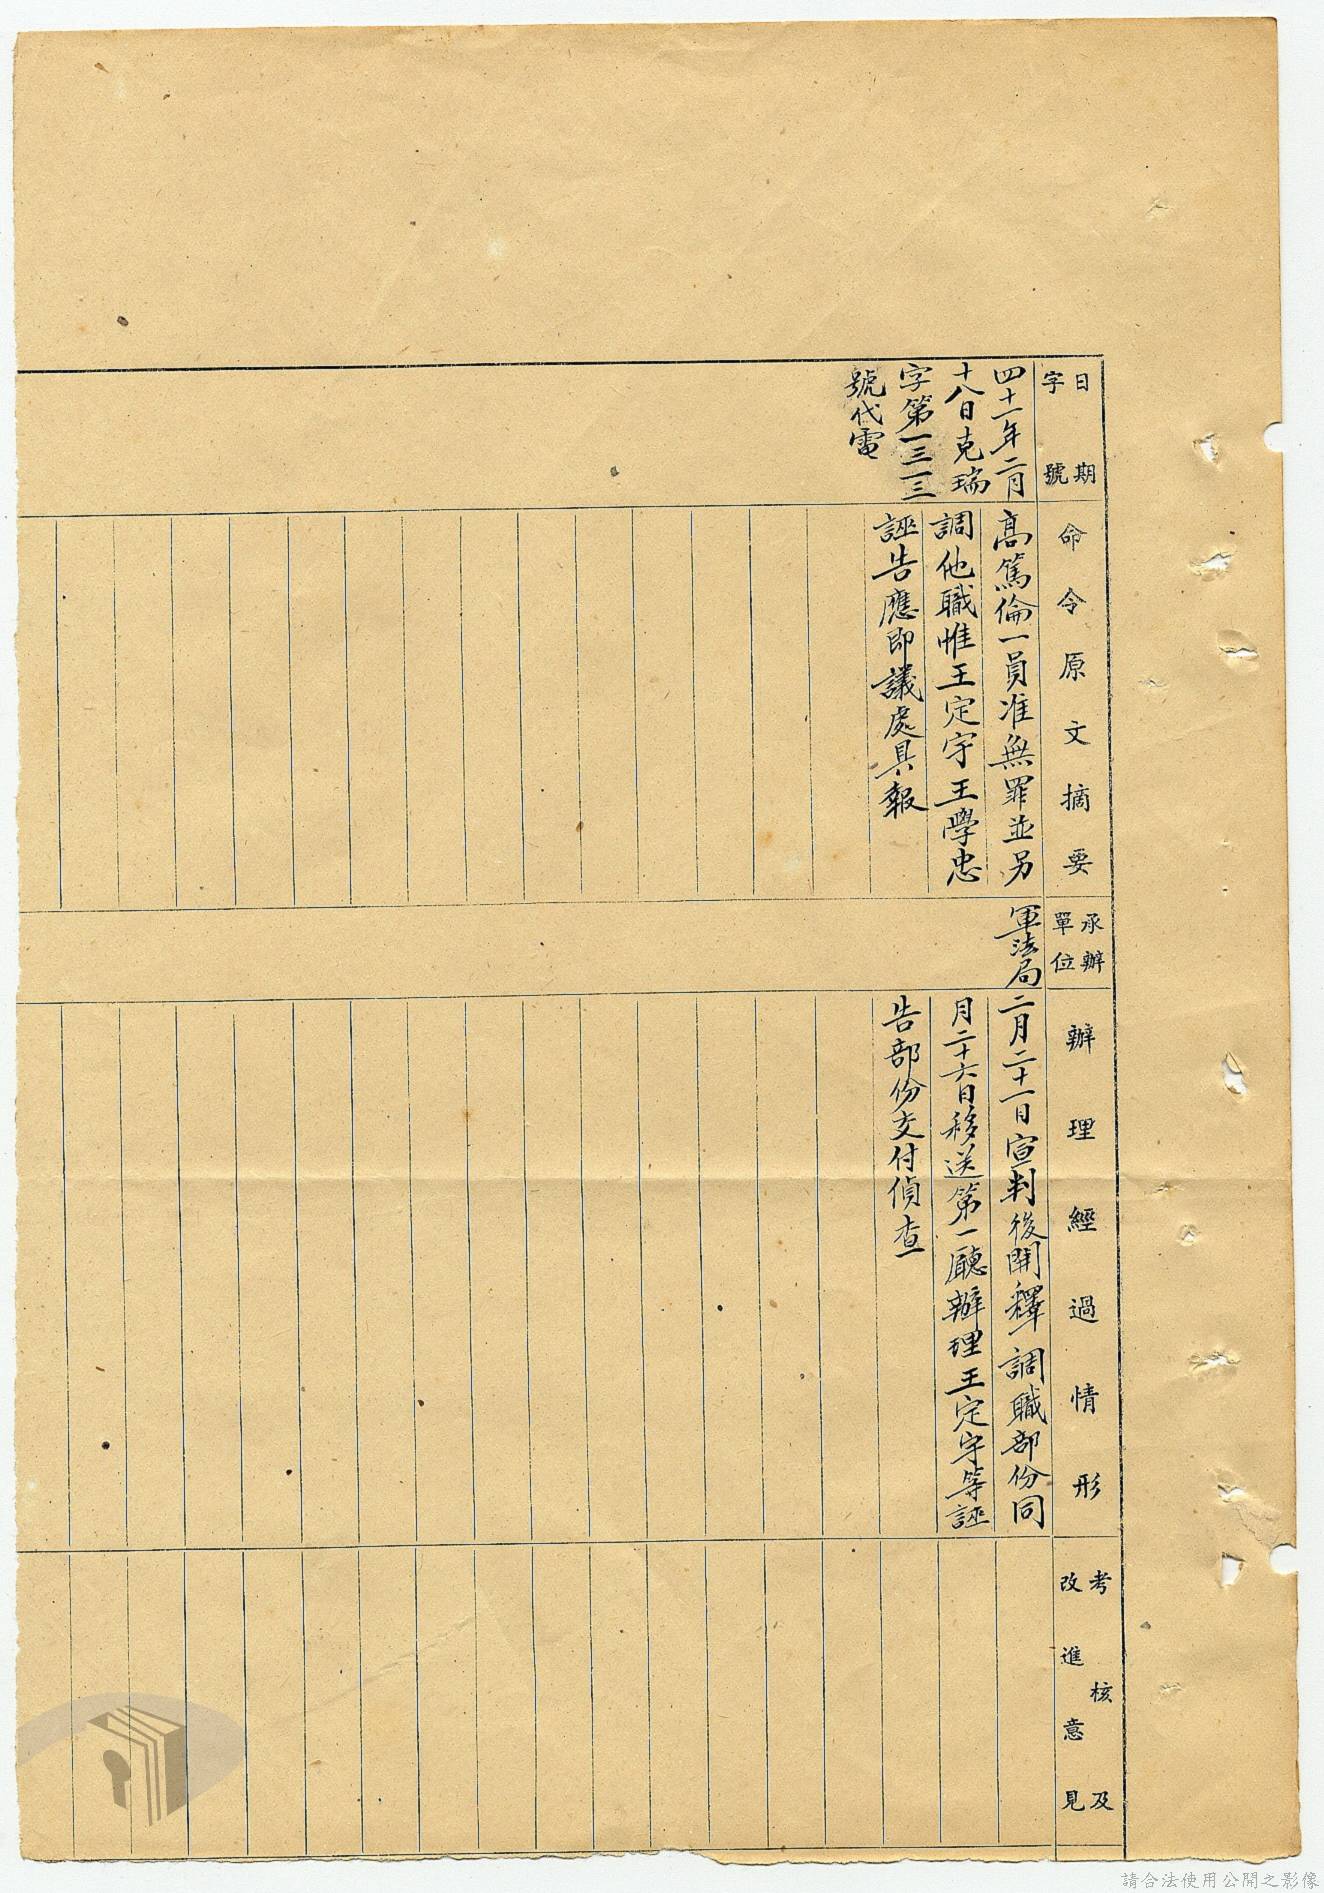 日期
字號
四十一年二月
十八日克瑞
字第一三一三
號代電
命令原文摘要
高篤倫一員准無罪並另
調他職惟王定宇王學忠
誣告應即議處具報
承辦
單位
軍法局
辦理經過情形
二月二十一日宣判後開釋調職部份同
月二十六日移送第一廳辦理王定宇等誣
告部份交付偵查
考核及
改進意見
請合法使用公開之影像